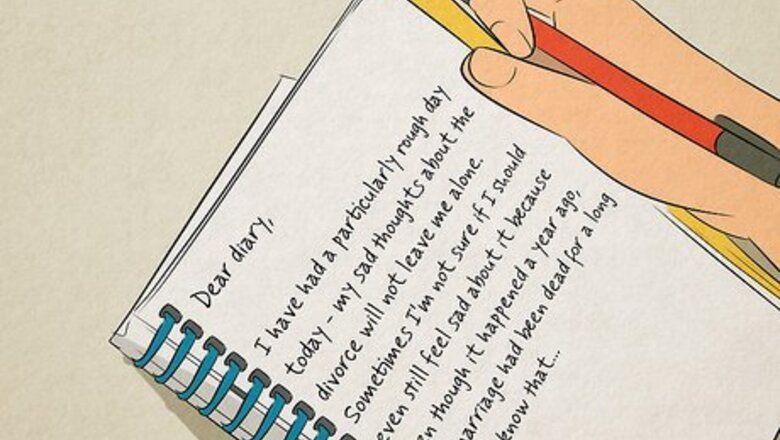 Dear diary,
I have had a particularly rough day
today - my sad thoughts about the
divorce will not leave me alone.
Sometimes I'm not sure if I should
even still feel sad about it because
en though it happened a year ago,
arriage had been dead for a long
know that...